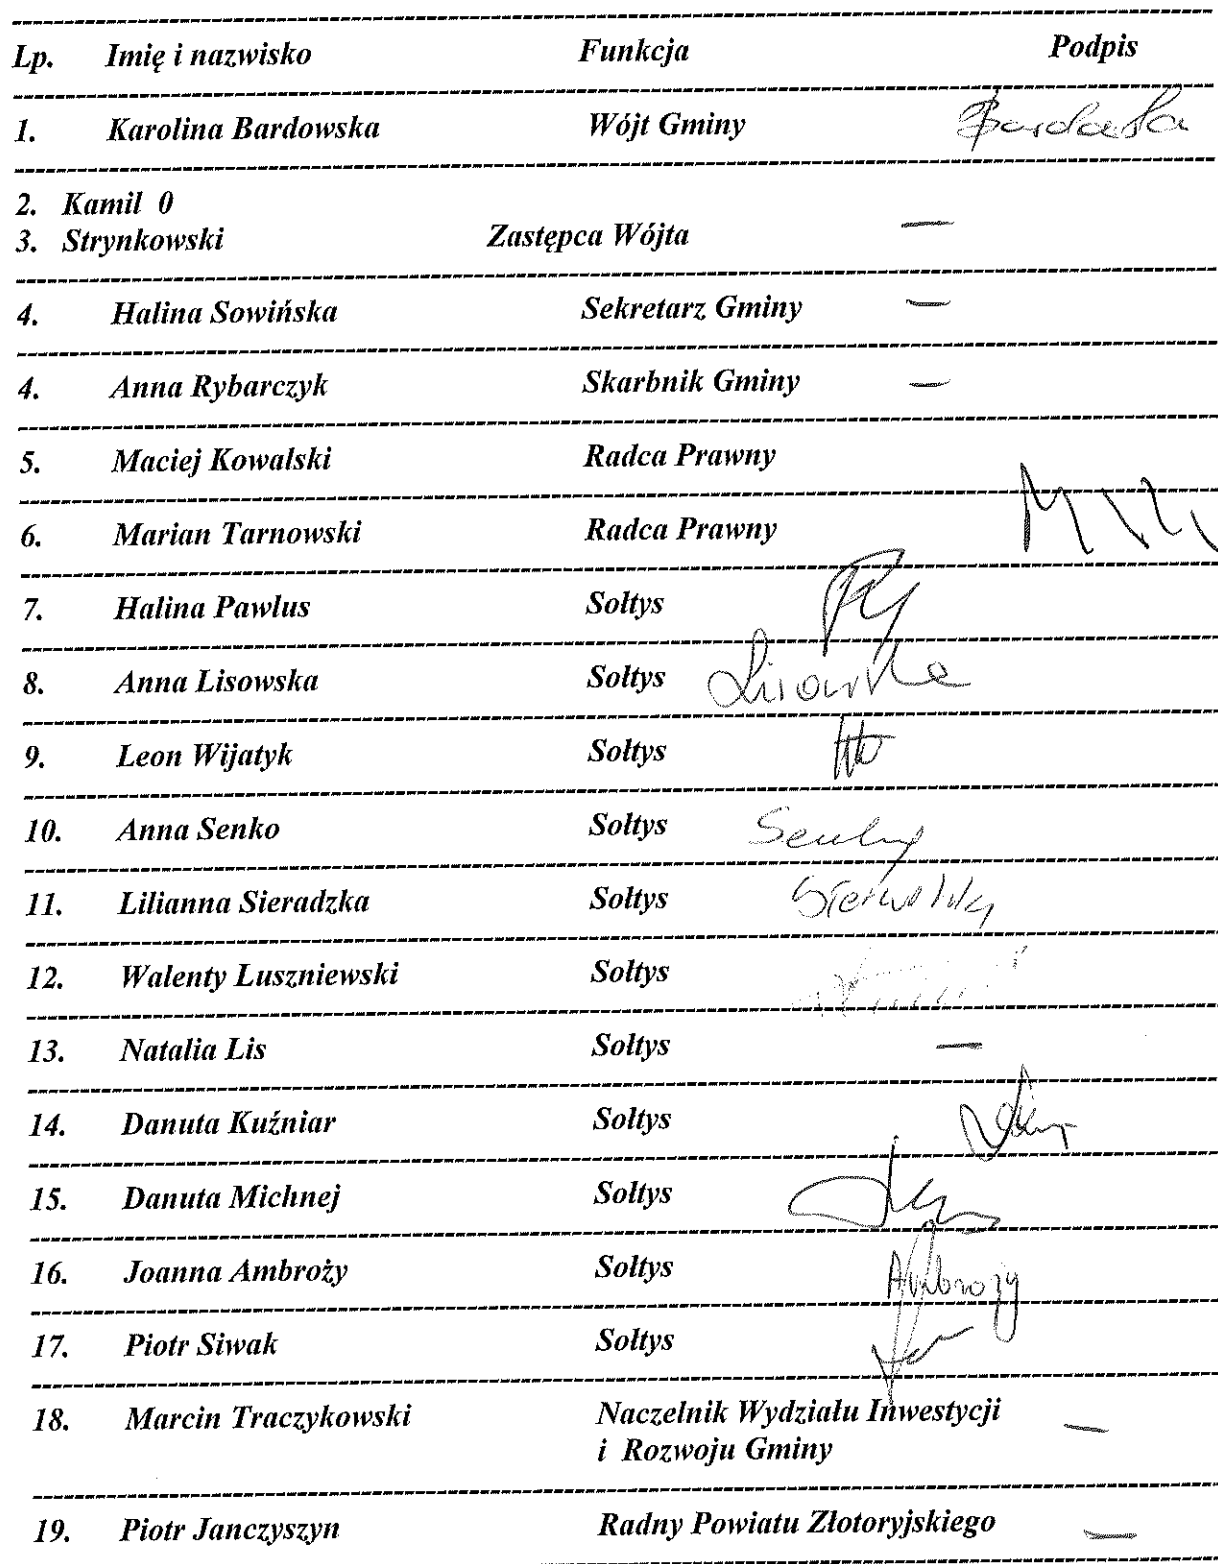 Lp. Imię i nazwisko Funkcja Podpis
1. Karolina Bardowska Wójt Gminy
2. Kamil 0
3. Strynkowski Zastępca Wójta —
4. Halina Sowińska Sekretarz Gminy —
4. Anna Rybarczyk Skarbnik Gminy —
5. Maciej Kowalski Radca Prawny
6. Marian Tarnowski Radca Prawny
7. Halina Pawlus Sołtys
8. Anna Lisowska Sołtys Lisowska
9. Leon Wijatyk Sołtys
10. Anna Senko Sołtys
11. Lilianna Sieradzka Sołtys
12. Walenty Luszniewski Sołtys
13. Natalia Lis Sołtys —
14. Danuta Kuźniar Sołtys
15. Danuta Michnej Sołtys
16. Joanna Ambroży Sołtys Ambroży
17. Piotr Siwak Sołtys
18. Marcin Traczykowski Naczelnik Wydziału Inwestycji —
i Rozwoju Gminy
19. Piotr Janczyszyn Radny Powiatu Złotoryjskiego —